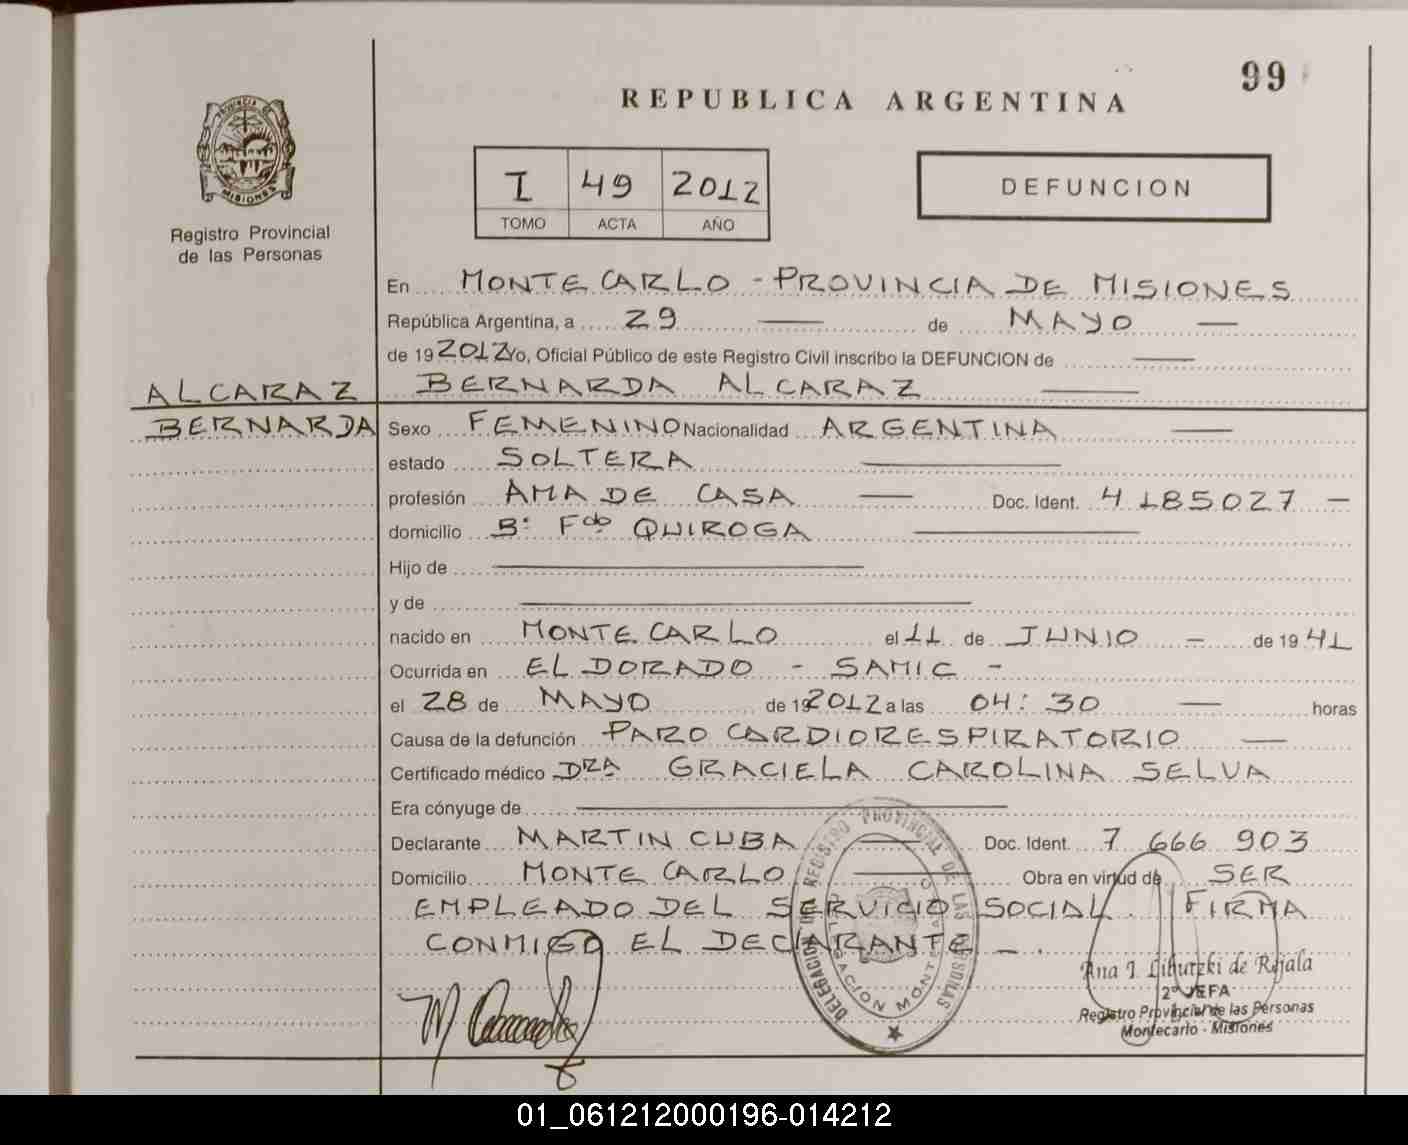 99
REPUBLICA ARGENTINA
PROVINCIA DE
MISIONES
Registro Provincial
de las Personas
I 49 2012
TOMO ACTA AÑO
DEFUNCION
En MONTECARLO - PROVINCIA DE MISIONES
República Argentina, a 29 — de MAYO —
de 19 2012 Yo, Oficial Público de este Registro Civil inscribo la DEFUNCION de —
ALCARAZ BERNARDA ALCARAZ —
BERNARDA Sexo FEMENINO Nacionalidad ARGENTINA —
estado SOLTERA —
profesión AMA DE CASA — Doc. Ident. 4185027 —
domicilio Bº Fdo QUIROGA —
Hijo de —
y de —
nacido en MONTECARLO el 11 de JUNIO — de 19 41
Ocurrida en ELDORADO - SAMIC -
el 28 de MAYO de 19 2012 a las 04:30 — horas
Causa de la defunción PARO CARDIORESPIRATORIO —
Certificado médico DRA GRACIELA CAROLINA SELVA
Era cónyuge de —
Declarante MARTIN CUBA — Doc. Ident. 7 666 903
Domicilio MONTECARLO — Obra en virtud de SER
EMPLEADO DEL SERVICIO SOCIAL. FIRMA
CONMIGO EL DECLARANTE —.
REGISTRO PROVINCIAL DE LAS PERSONAS
DELEGACION
Ana I. Liburzki de Rejala
2º JEFA
Registro Provincial de las Personas
Montecarlo - Misiones
01_061212000196-014212